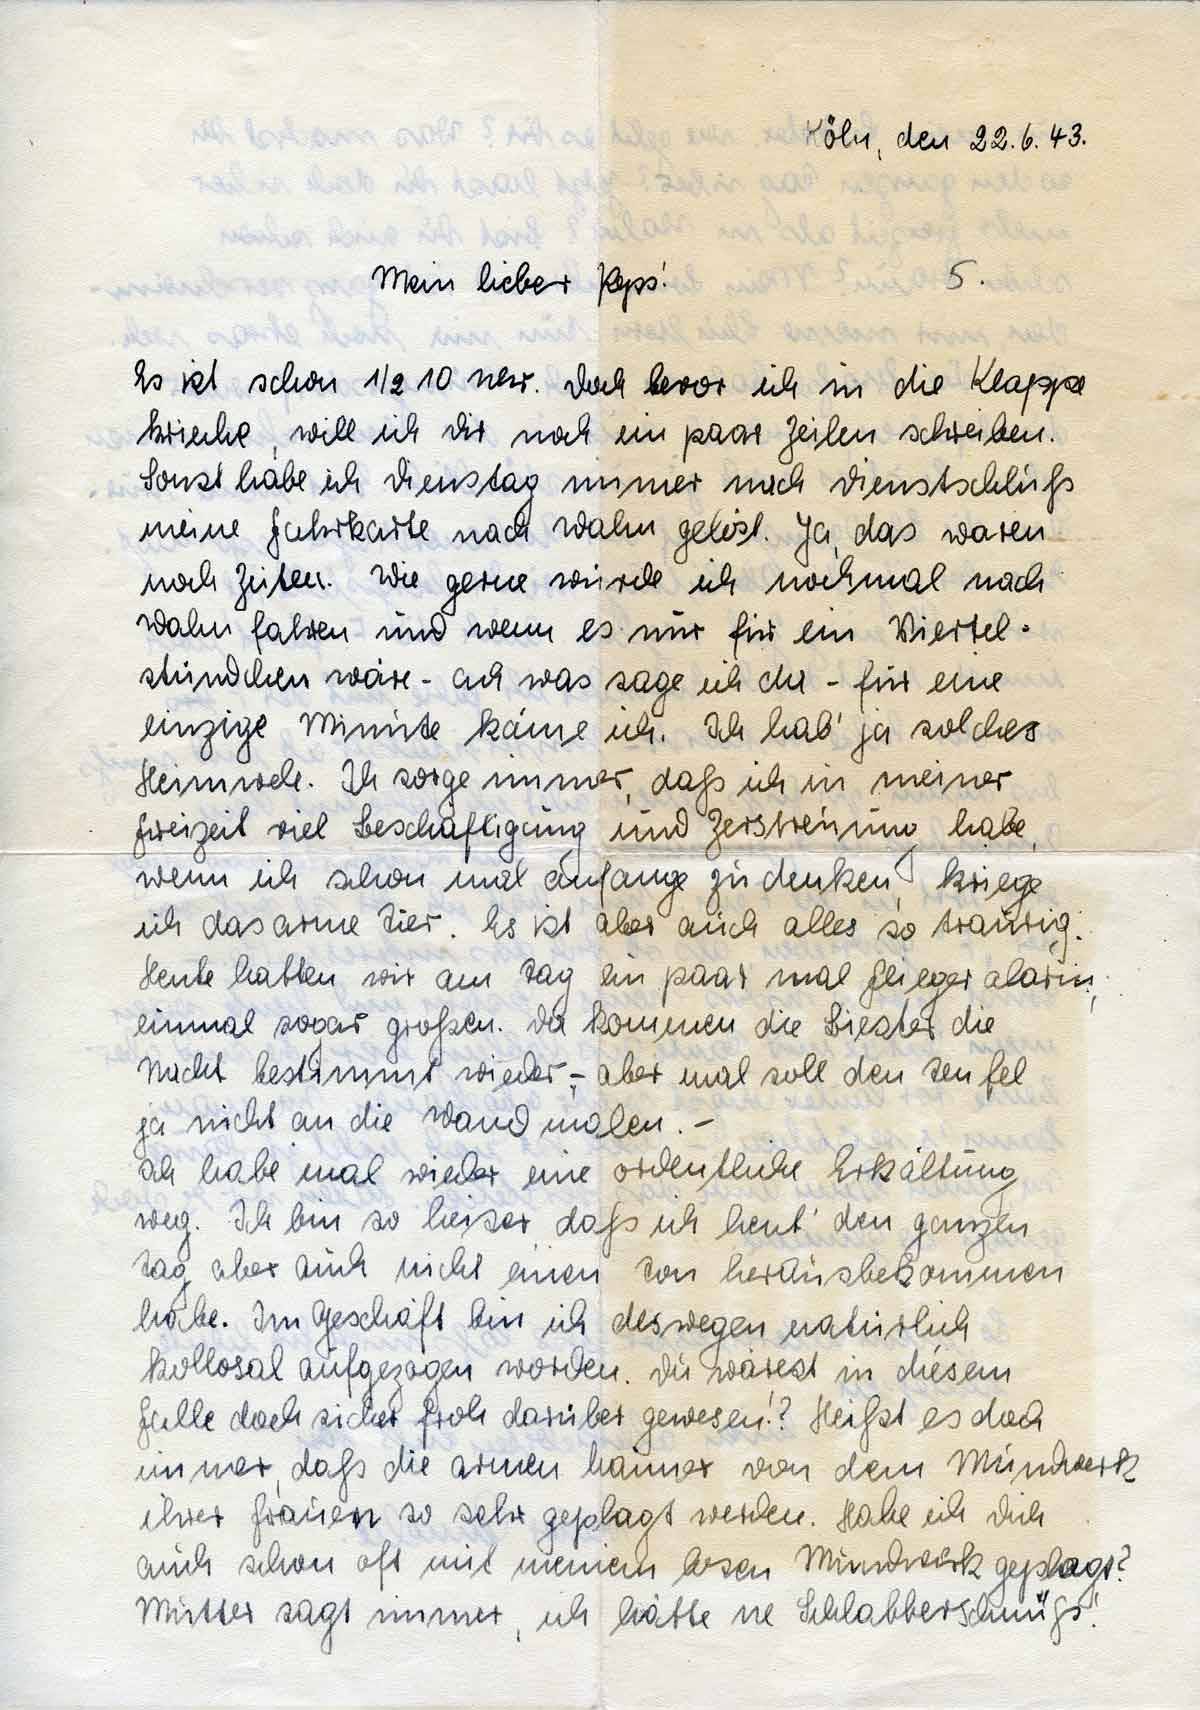 Köln, den 22.6.43.
Mein lieber Peps! 5.
Es ist schon 1/2 10 Uhr. Doch bevor ich in die Klappe
krieche, will ich Dir noch ein paar Zeilen schreiben.
Sonst habe ich Dienstag immer nach Dienstschluß
meine Fahrkarte nach Wahn gelöst. Ja, das waren
noch Zeiten. Wie gerne würde ich nochmal nach
Wahn fahren und wenn es nur für ein Viertel-
stündchen wäre - ach was sage ich da - für eine
einzige Minute käme ich. Ich hab' ja solches
Heimweh. Ich sorge immer, daß ich in meiner
Freizeit viel Beschäftigung und Zerstreuung habe,
wenn ich schon mal anfange zu denken, kriege
ich das arme Tier. Es ist aber auch alles so traurig.
Heute hatten wir am Tag ein paar mal Fliegeralarm,
einmal sogar großen. Da kommen die Biester die
Nacht bestimmt wieder, - aber mal soll den Teufel
ja nicht an die Wand malen. -
Ich habe mal wieder eine ordentliche Erkältung
weg. Ich bin so heiser, daß ich heut' den ganzen
Tag aber auch nicht einen Ton herausbekommen
habe. Im Geschäft bin ich deswegen natürlich
kollosal aufgezogen worden. Du wärest in diesem
Falle doch sicher froh darüber gewesen!? Heißt es doch
immer, daß die armen Männer von dem Mundwerk
ihrer Frauen so sehr geplagt werden. Habe ich Dich
auch schon oft mit meinem bösen Mundwerk geplagt?
Mutter sagt immer, ich hätte ne Schlabberschnüß!